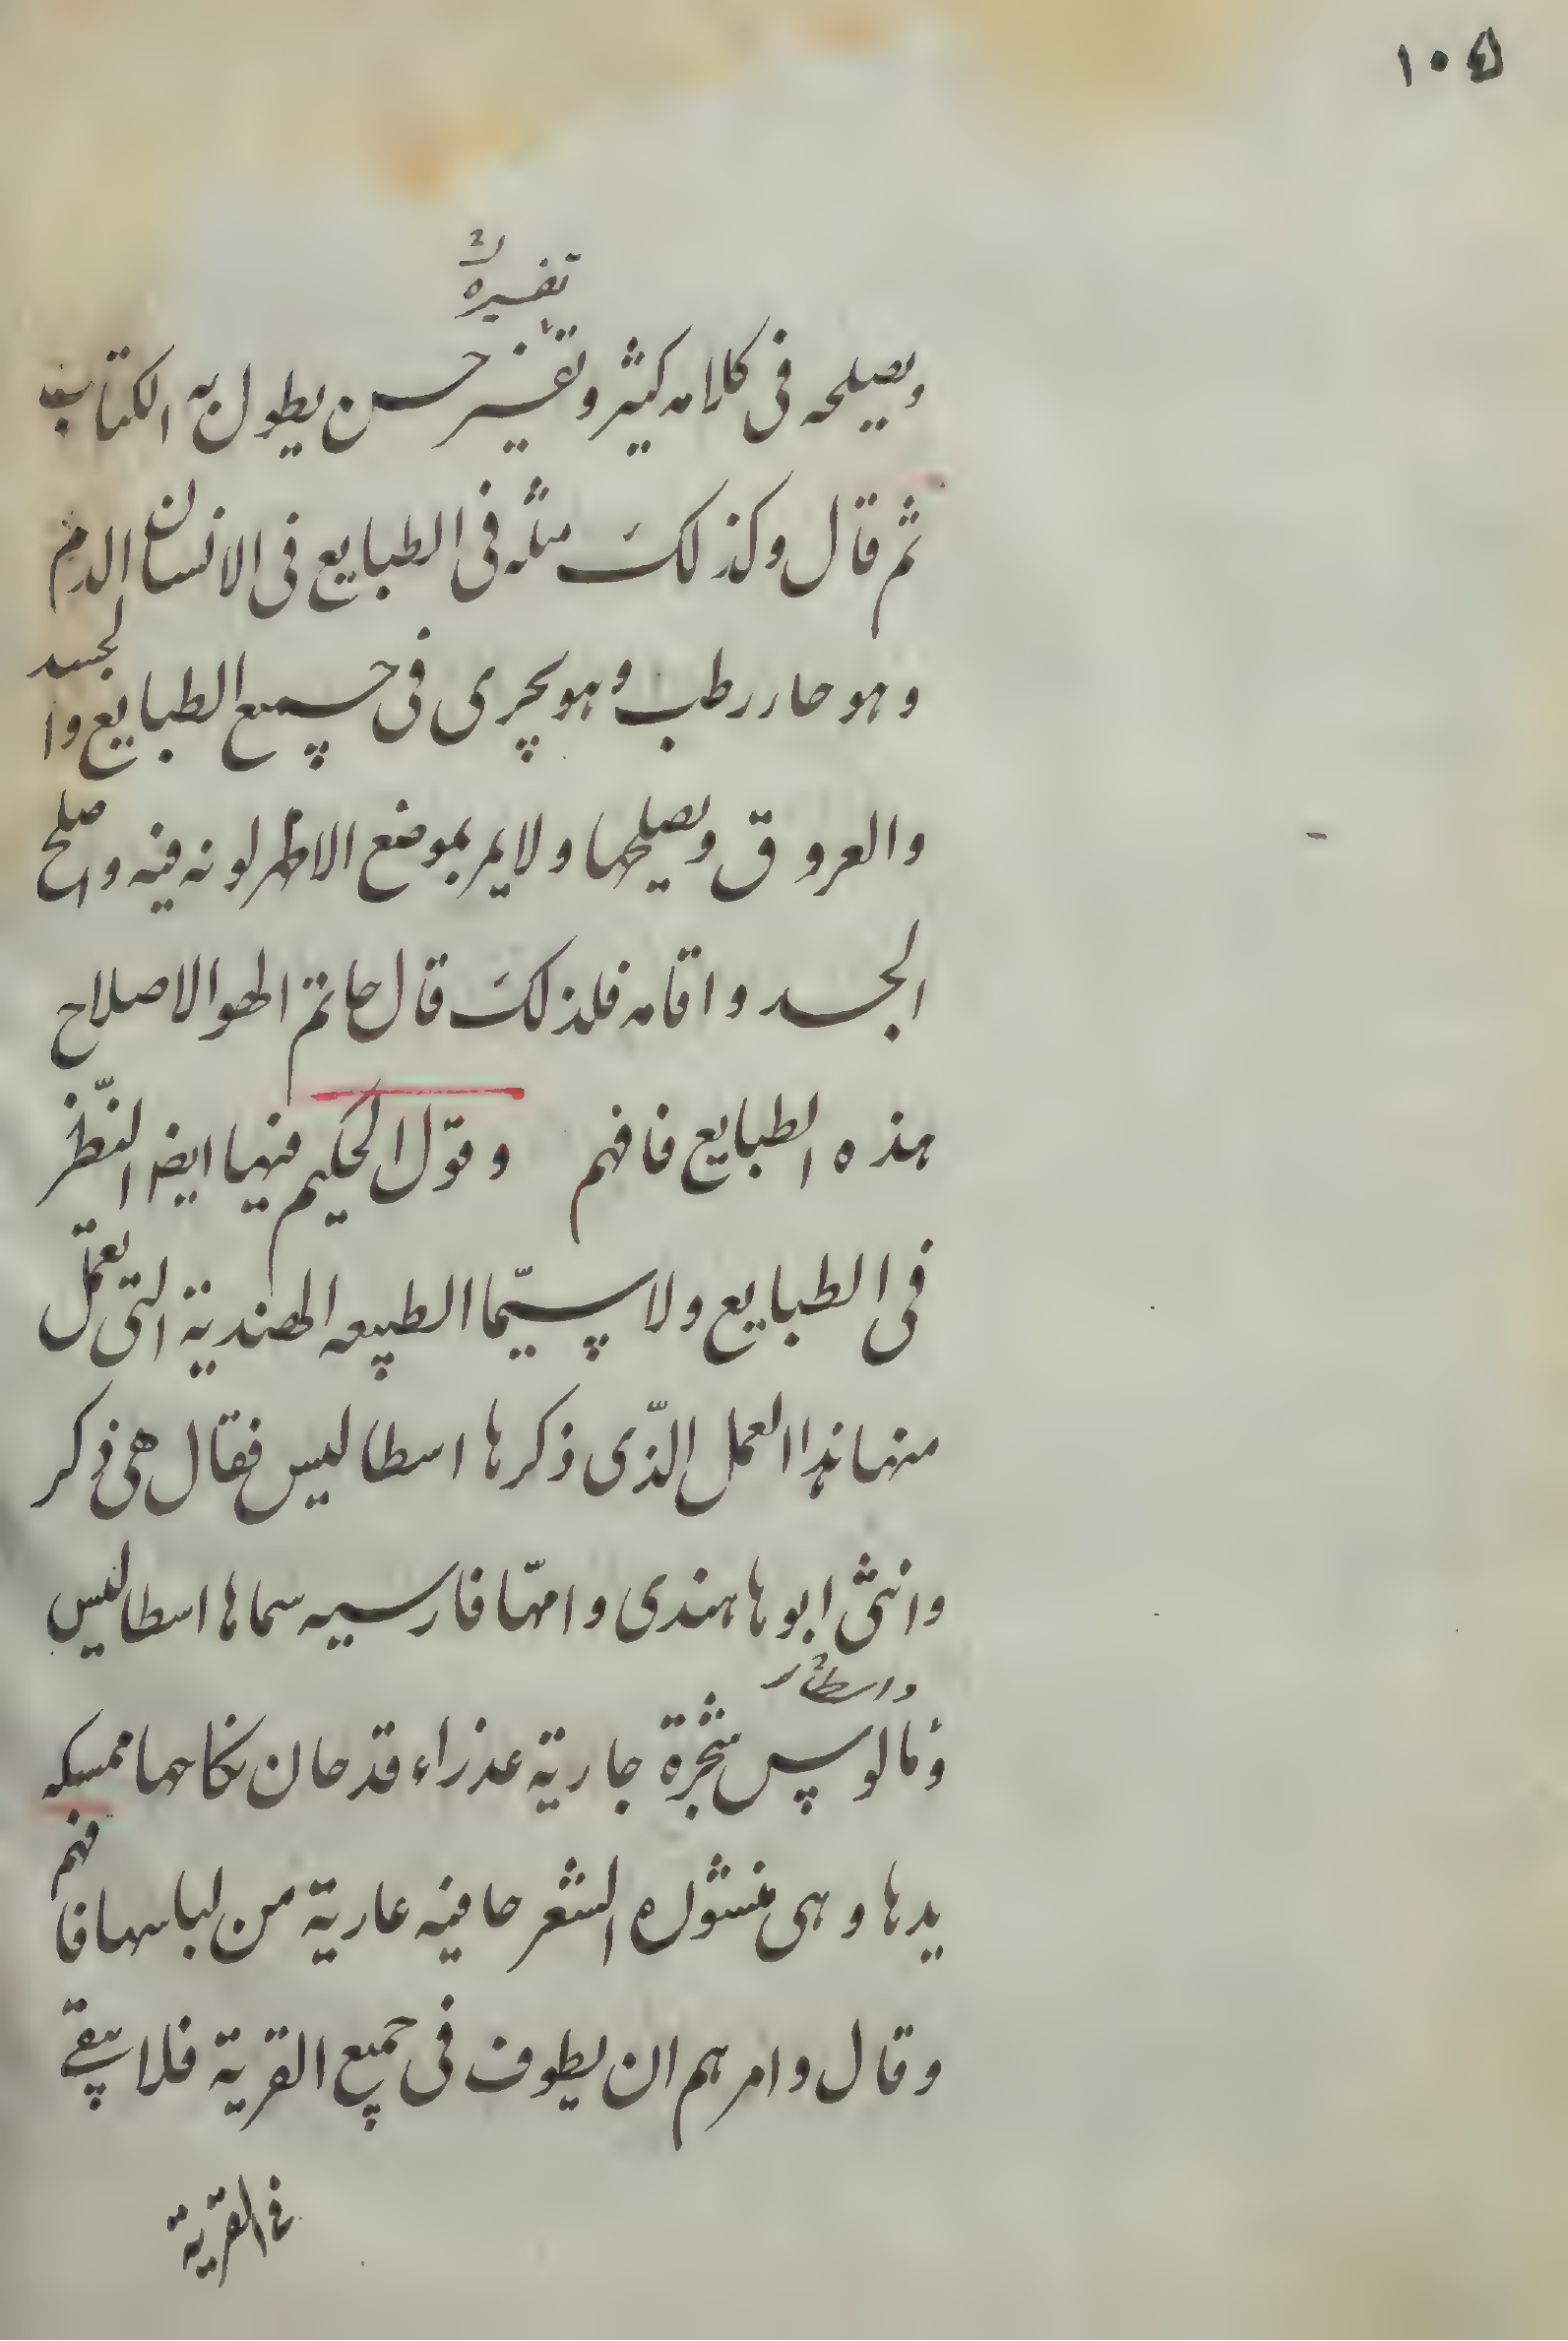 ١٠٥
تفسيره
ويصلحه فى كلامه كثير وتفسير حسن يطول به الكتاب
ثم قال وكذلك مثله فى الطبايع فى الانسان الدم
وهو حار رطب وهو يجرى فى جميع الطبايع والجسد
والعروق ويصلحها ولا يمر بموضع الا ظهر لونه فيه واصلح
الجسد واقامه فلذلك قال حاتم الهوا لاصلاح
هذه الطبايع فافهم وقول الحكيم فيها ايضا النّظر
فى الطبايع ولا سيّما الطبيعه الهندية التى يعمل
منها هذا العمل الذّى ذكرها اسطاليس فقال هى ذكر
وانثى ابوها هندى وامّها فارسيه سماها اسطاليس
ومالوس شجرة جارية عذراء قد حان نكاحها ممسكه
يدها وهى منشوله الشعر حافيه عارية من لباسها فافهم
وقال وامرهم ان يطوف فى جميع القرية فلا يبقى
فى القرية